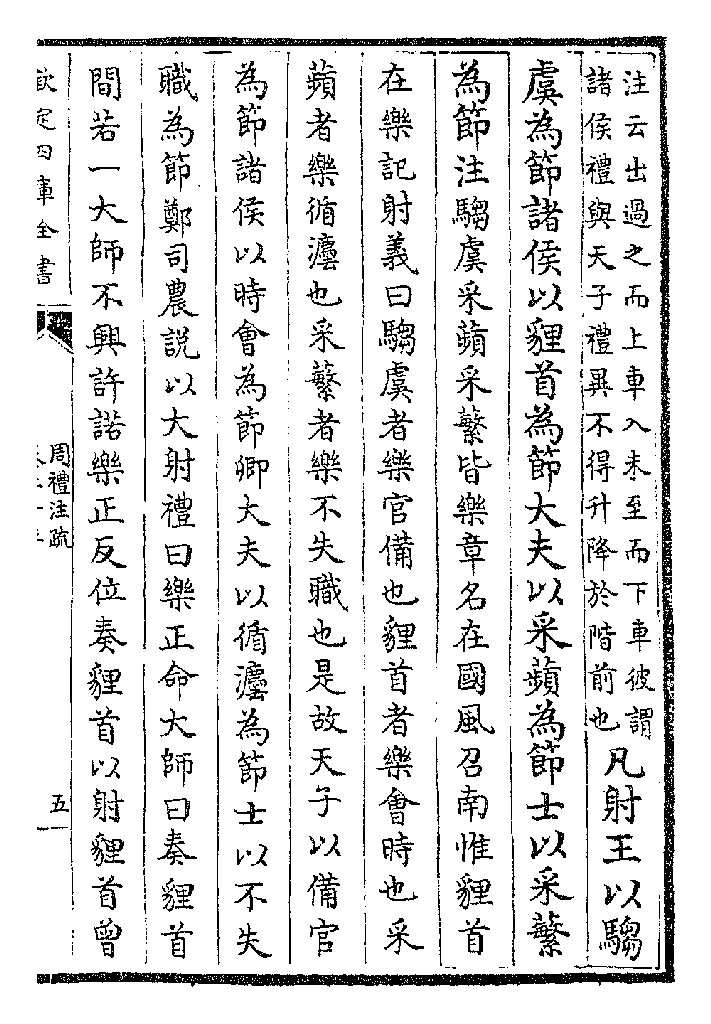 注云出過之而上車入未至而下車彼謂
諸侯禮與天子禮異不得升降於階前也
凡射王以騶
虞為節諸侯以貍首為節大夫以采蘋為節士以采蘩
為節注騶虞采蘋采蘩皆樂章名在國風召南惟貍首
在樂記射義曰騶虞者樂官備也貍首者樂會時也采
蘋者樂循灋也采蘩者樂不失職也是故天子以備官
為節諸侯以時會為節卿大夫以循灋為節士以不失
職為節鄭司農說以大射禮曰樂正命大師曰奏貍首
間若一大師不興許諾樂正反位奏貍首以射貍首曾
欽定四庫全書
周禮注疏
五